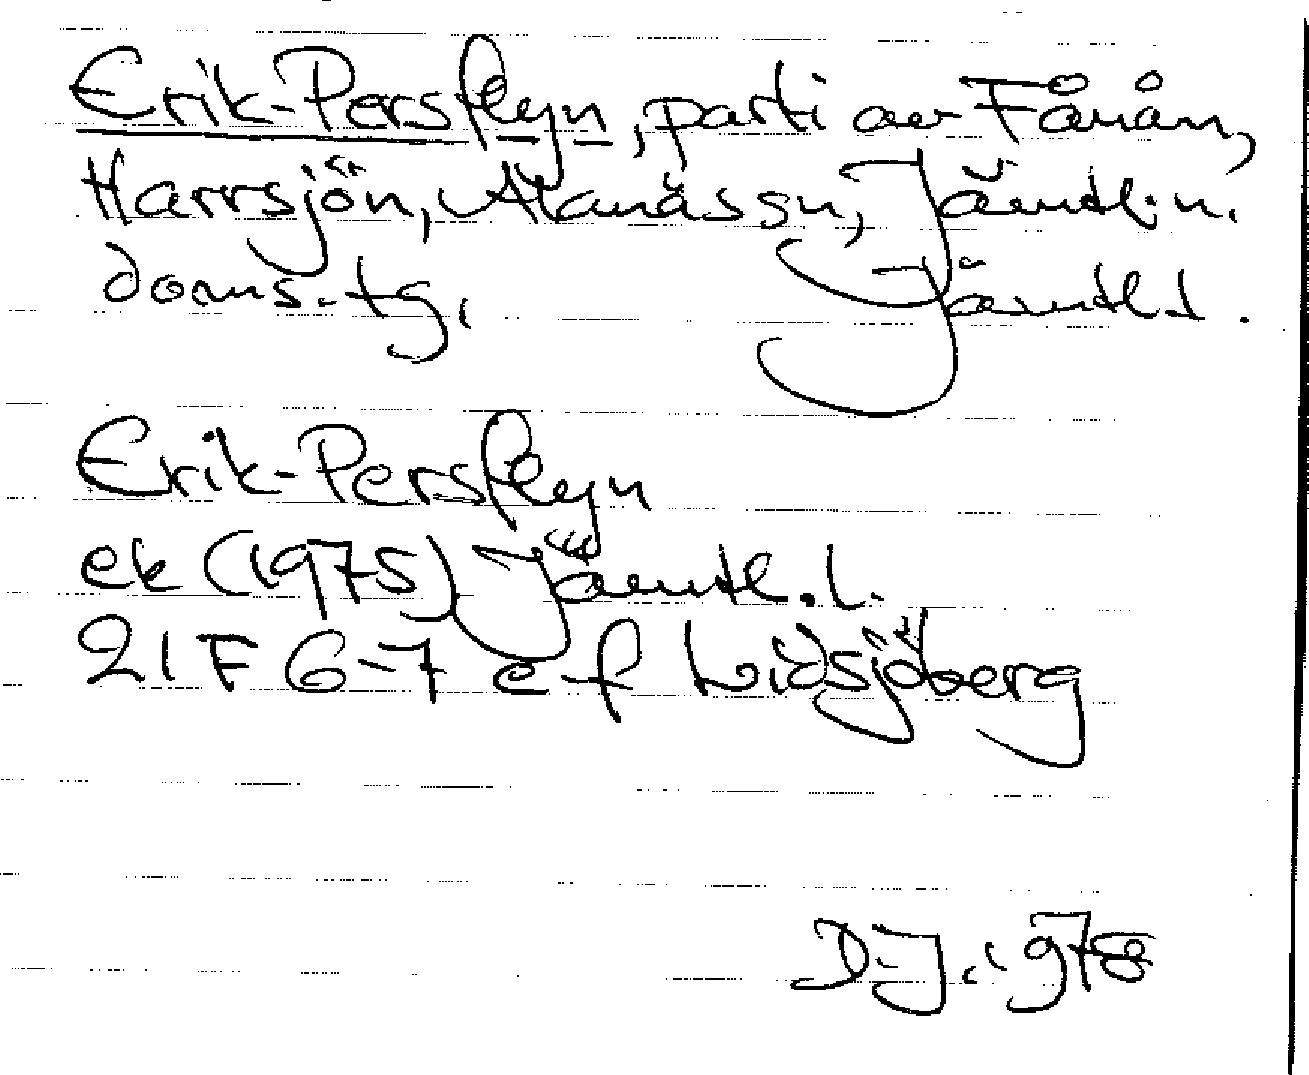 Erik-Persfleyn, parti av Fåran,
Harrsjön, Alanäs sn, Jämtl:n.
doms.tg. Jämtl.l.
Erik-Persfleyn
ek (1975) Jämtl.l.
21F 6-7 e-f Lidsjöberg
D.J. 1978